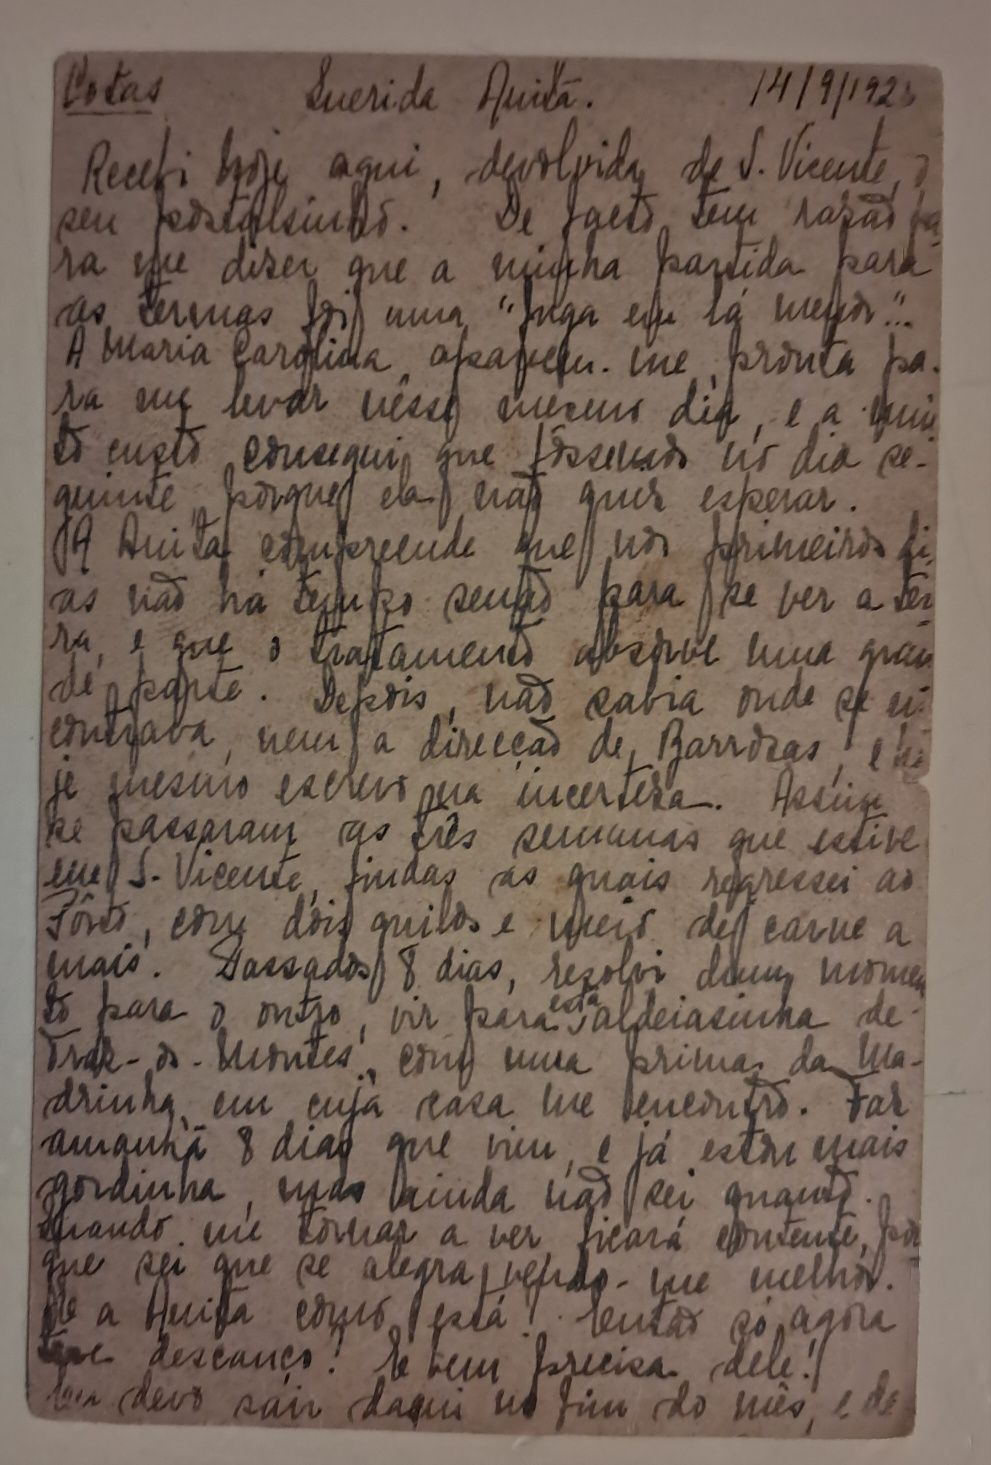 Cotas Querida Anita. 14/9/192
Recebi hoje aqui, devolvida de S. Vicente, o
seu postalsinho. De facto tem razão pa-
ra me dizer que a minha partida para
as termas foi uma "fuga em lá menor"..
A Maria Carolina apareceu-me pronta pa-
ra me levar nêsse mesmo dia, e a mui-
to custo consegui que fôssemos no dia se-
guinte, porque ela não quiz esperar.
A Anita compreende que nos primeiros di-
as não há tempo senão para se ver a ter-
ra, e que o tratamento absorve uma gran-
de parte. Depois, não sabia onde se en-
contrava, nem a direcção de Barrosas, e ho-
je mesmo escrevo na incerteza. Assim
se passaram as três semanas que estive
em S. Vicente, findas as quais regressei ao
Pôrto, com dois quilos e meio de carne a
mais. Passados 8 dias, resolvi dum momen-
to para o outro, vir para esta aldeiasinha de
Traz-os-Montes, com uma prima da Ma-
drinha, em cuja casa me encontro. Faz
amanhã 8 dias que vim, e já estou mais
gordinha, mas ainda não sei quanto.
Quando me tornar a ver, ficará contente, por
que sei que se alegra vendo-me melhor.
E a Anita como está? Então só agora
teve descanço! E bem precisa dele!
Eu devo saír daqui no fim do mês, e de